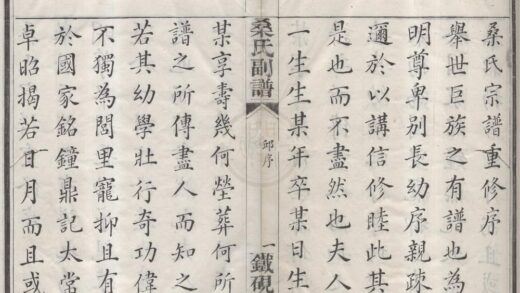 桑氏宗譜重修序
舉世巨族之有譜也為
明尊卑别長幼序親疎
邇於以講信修睦此其
是也而不盡然也夫人
一生生某年卒某日生
桑氏副譜
邱序
一
鐵硯
某享壽幾何塋葬何所
譜之所傳盡人而知之
若其幼學壯行奇功偉
不獨為閭里寵抑且有
於國家銘鐘鼎記太常
卓昭揭若日月而且或